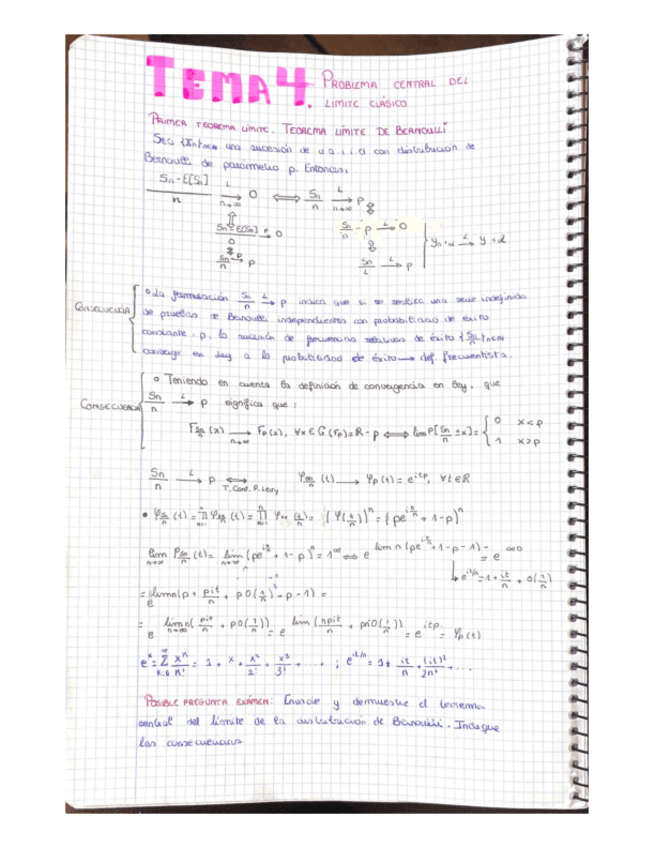 TEMA 4. PROBLEMA CENTRAL DEL
LIMITE CLÁSICO
PRIMER TEOREMA LIMITE. TEOREMA LÍMITE DE BERNOULLI
Sea {Xn}n∈ℕ una sucesión de v a i i d con distribución de
Bernoulli de parámetro p. Entonces,
(Sn - E[Sn])/n →(L, n→∞) 0 ⟺ Sn/n →(L, n→∞) p
⇕ ⇕
(Sn - E[Sn])/0 →(P) 0 Sn/n - p →(L) 0
⇕ ⇕
Sn/n →(P) p Sn/L →(L) p
Yn + a →(L) Y + a
CONSECUENCIA
o La formulación Sn/n →(L) p indica que si se realiza una serie indefinida
de pruebas de Bernoulli independientes con probabilidad de éxito
constante, p, la sucesión de frecuencias relativas de éxito {Sn/n}n∈ℕ
converge en ley a la probabilidad de éxito → def frecuentista.
CONSECUENCIA
o Teniendo en cuenta la definición de convergencia en ley, que
Sn/n →(L) p significa que:
F Sn/n (x) →(n→∞) Fp(x), ∀x∈C(Fp)=R-p ⟺ lim P[Sn/n ≤ x] = { 0 x<p
1 x>p
Sn/n →(L, n→∞) p ⟺(T. Cont. P. Levy) φSn/n (t) → φp(t) = e^{itp}, ∀t∈R
• φSn/n (t) = ∏ φXk/n (t) = ∏ φXk (t/n) = (φ(t/n))^n = (pe^{it/n} + 1-p)^n
lim φSn/n (t) = lim (pe^{it/n} + 1-p)^n = 1^∞ ⟺ e^{lim n(pe^{it/n} + 1-p-1)} = e^{∞·0}
↳ e^{it/n} = 1 + it/n + o(1/n)
= e^{lim n(p + pit/n + pO(1/n) - p - 1)} =
= e^{lim n(pit/n + pO(1/n))} = e^{lim (npit/n + pnO(1/n))} = e^{itp} = φp(t)
e^x = Σ x^n/n! = 1 + x + x²/2! + x³/3! + ... ; e^{it/n} = 1 + it/n + (it)²/2n² + ...
POSIBLE PREGUNTA EXÁMEN: Enuncie y demuestre el teorema
central del límite de la distribución de Bernoulli. Indique
las consecuencias